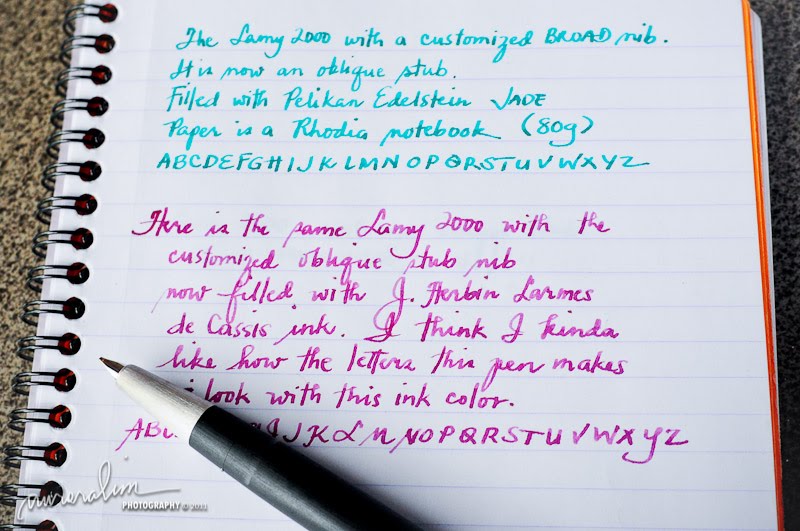 The Lamy 2000 with a customized BROAD nib.
It is now an oblique stub.
Filled with Pelikan Edelstein JADE
Paper is a Rhodia notebook (80g)
ABCDEFGHIJKLMNOPQRSTUVWXYZ
Here is the same Lamy 2000 with the
customized oblique stub nib
now filled with J. Herbin Larmes
de Cassis ink. I think I kinda
like how the letters this pen makes
look with this ink color.
ABC IJKLMNOPQRSTUVWXYZ
PHOTOGRAPHY © 2011